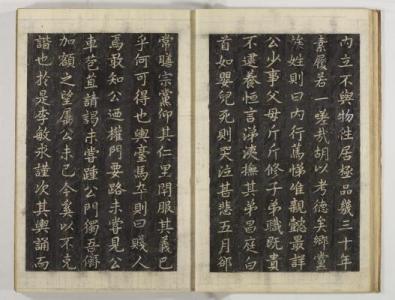 内立不與物性居極品幾三十年
素履若一嗟我胡以考德矣鄉黨
族姓則曰内行篤悌唯親懿最詳
公少事父母斤斤修子弟職既貴
不逮養恒言涕洟撫其弟昌庭白
首如嬰兒死則哭泣甚悲五月郤
常曕宗黨仰其仁里閈服其義巴
乎何可得也輿臺馬卒則曰賤人
焉敢知公迺權門要路未嘗見公
車苞苴請謁未嘗踵公門獨吾儕
加額之望屬公未已今奚以不克
諧也於是李敏永謹次其輿誦而